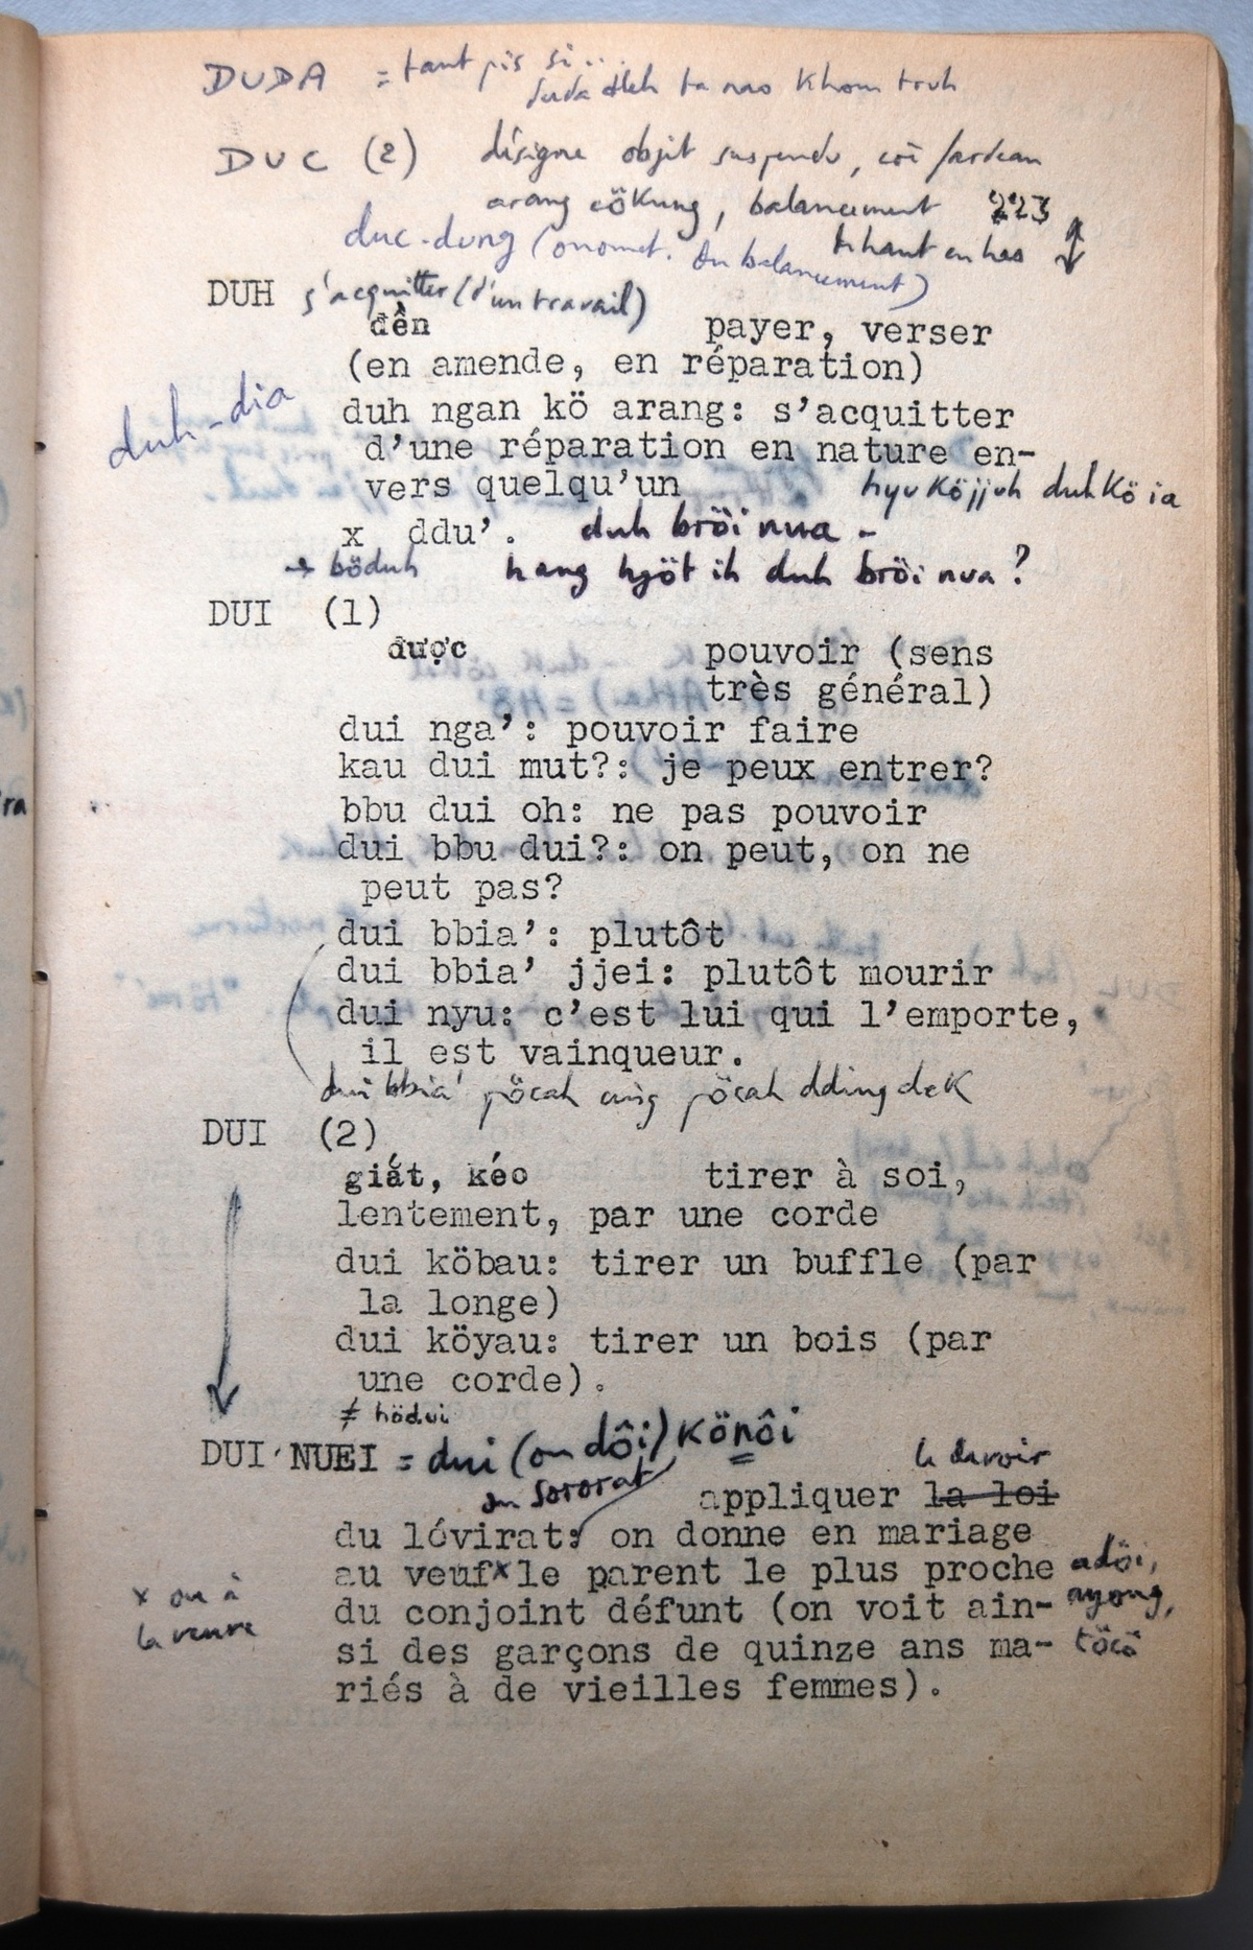 DUDA = tant pis si...
duda dleh ta nao khom truh
DUC (2) désigne objet suspendu, fardeau
arang cökung, balancement 223
duc-dung (onomat. du balancement) haut en bas
DUH s'acquitter (d'un travail)
đền payer, verser
(en amende, en réparation)
duh-dia
duh ngan kö arang: s'acquitter
d'une réparation en nature en-
vers quelqu'un hyu köjjuh duh kö ia
x ddu'. duh bröi nua -
→ böduh hang hjöt ih duh bröi nua?
DUI (1)
được pouvoir (sens
très général)
dui nga': pouvoir faire
kau dui mut?: je peux entrer?
bbu dui oh: ne pas pouvoir
dui bbu dui?: on peut, on ne
peut pas?
dui bbia': plutôt
dui bbia' jjei: plutôt mourir
dui nyu: c'est lui qui l'emporte,
il est vainqueur.
dui bbia' pöcah pöcah dding dek
DUI (2)
giắt, kéo tirer à soi,
lentement, par une corde
dui köbau: tirer un buffle (par
la longe)
dui köyau: tirer un bois (par
une corde).
≠ hödui
DUI NUEI = dui (ou dôi) könôi
le devoir
ou sororat appliquer la loi
du lévirat: on donne en mariage
au veuf x le parent le plus proche adöi,
x ou à
la veuve
du conjoint défunt (on voit ain- ayong,
si des garçons de quinze ans ma- töcô
riés à de vieilles femmes).